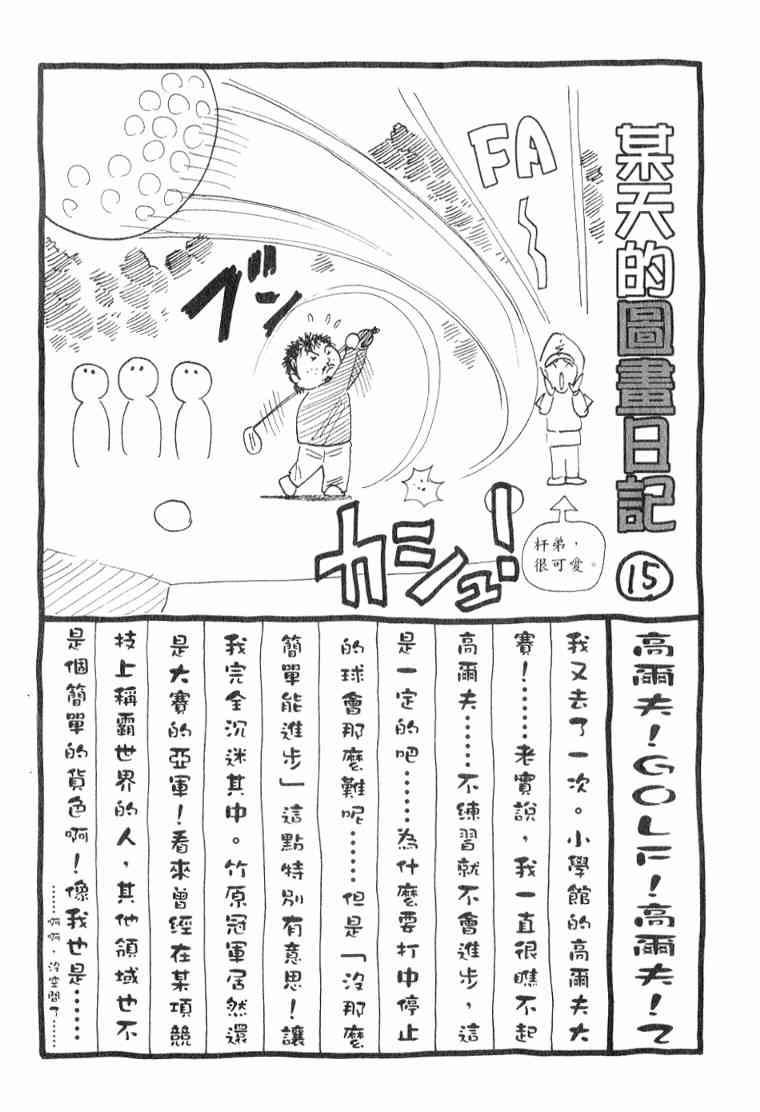 某天的圖畫日記
15
FA
ブン
カシュ!
杆弟,
很可愛。
高爾夫!GOLF!高爾夫!2
我又去了一次。小學館的高爾夫大
賽!……老實說,我一直很瞧不起
高爾夫……不練習就不會進步,這
是一定的吧……為什麼要打中停止
的球會那麼難呢……但是「沒那麼
簡單能進步」這點特別有意思!讓
我完全沉迷其中。竹原冠軍居然還
是大賽的亞軍!看來曾經在某項競
技上稱霸世界的人,其他領域也不
是個簡單的貨色啊!像我也是……
……啊啊,沒空間了……